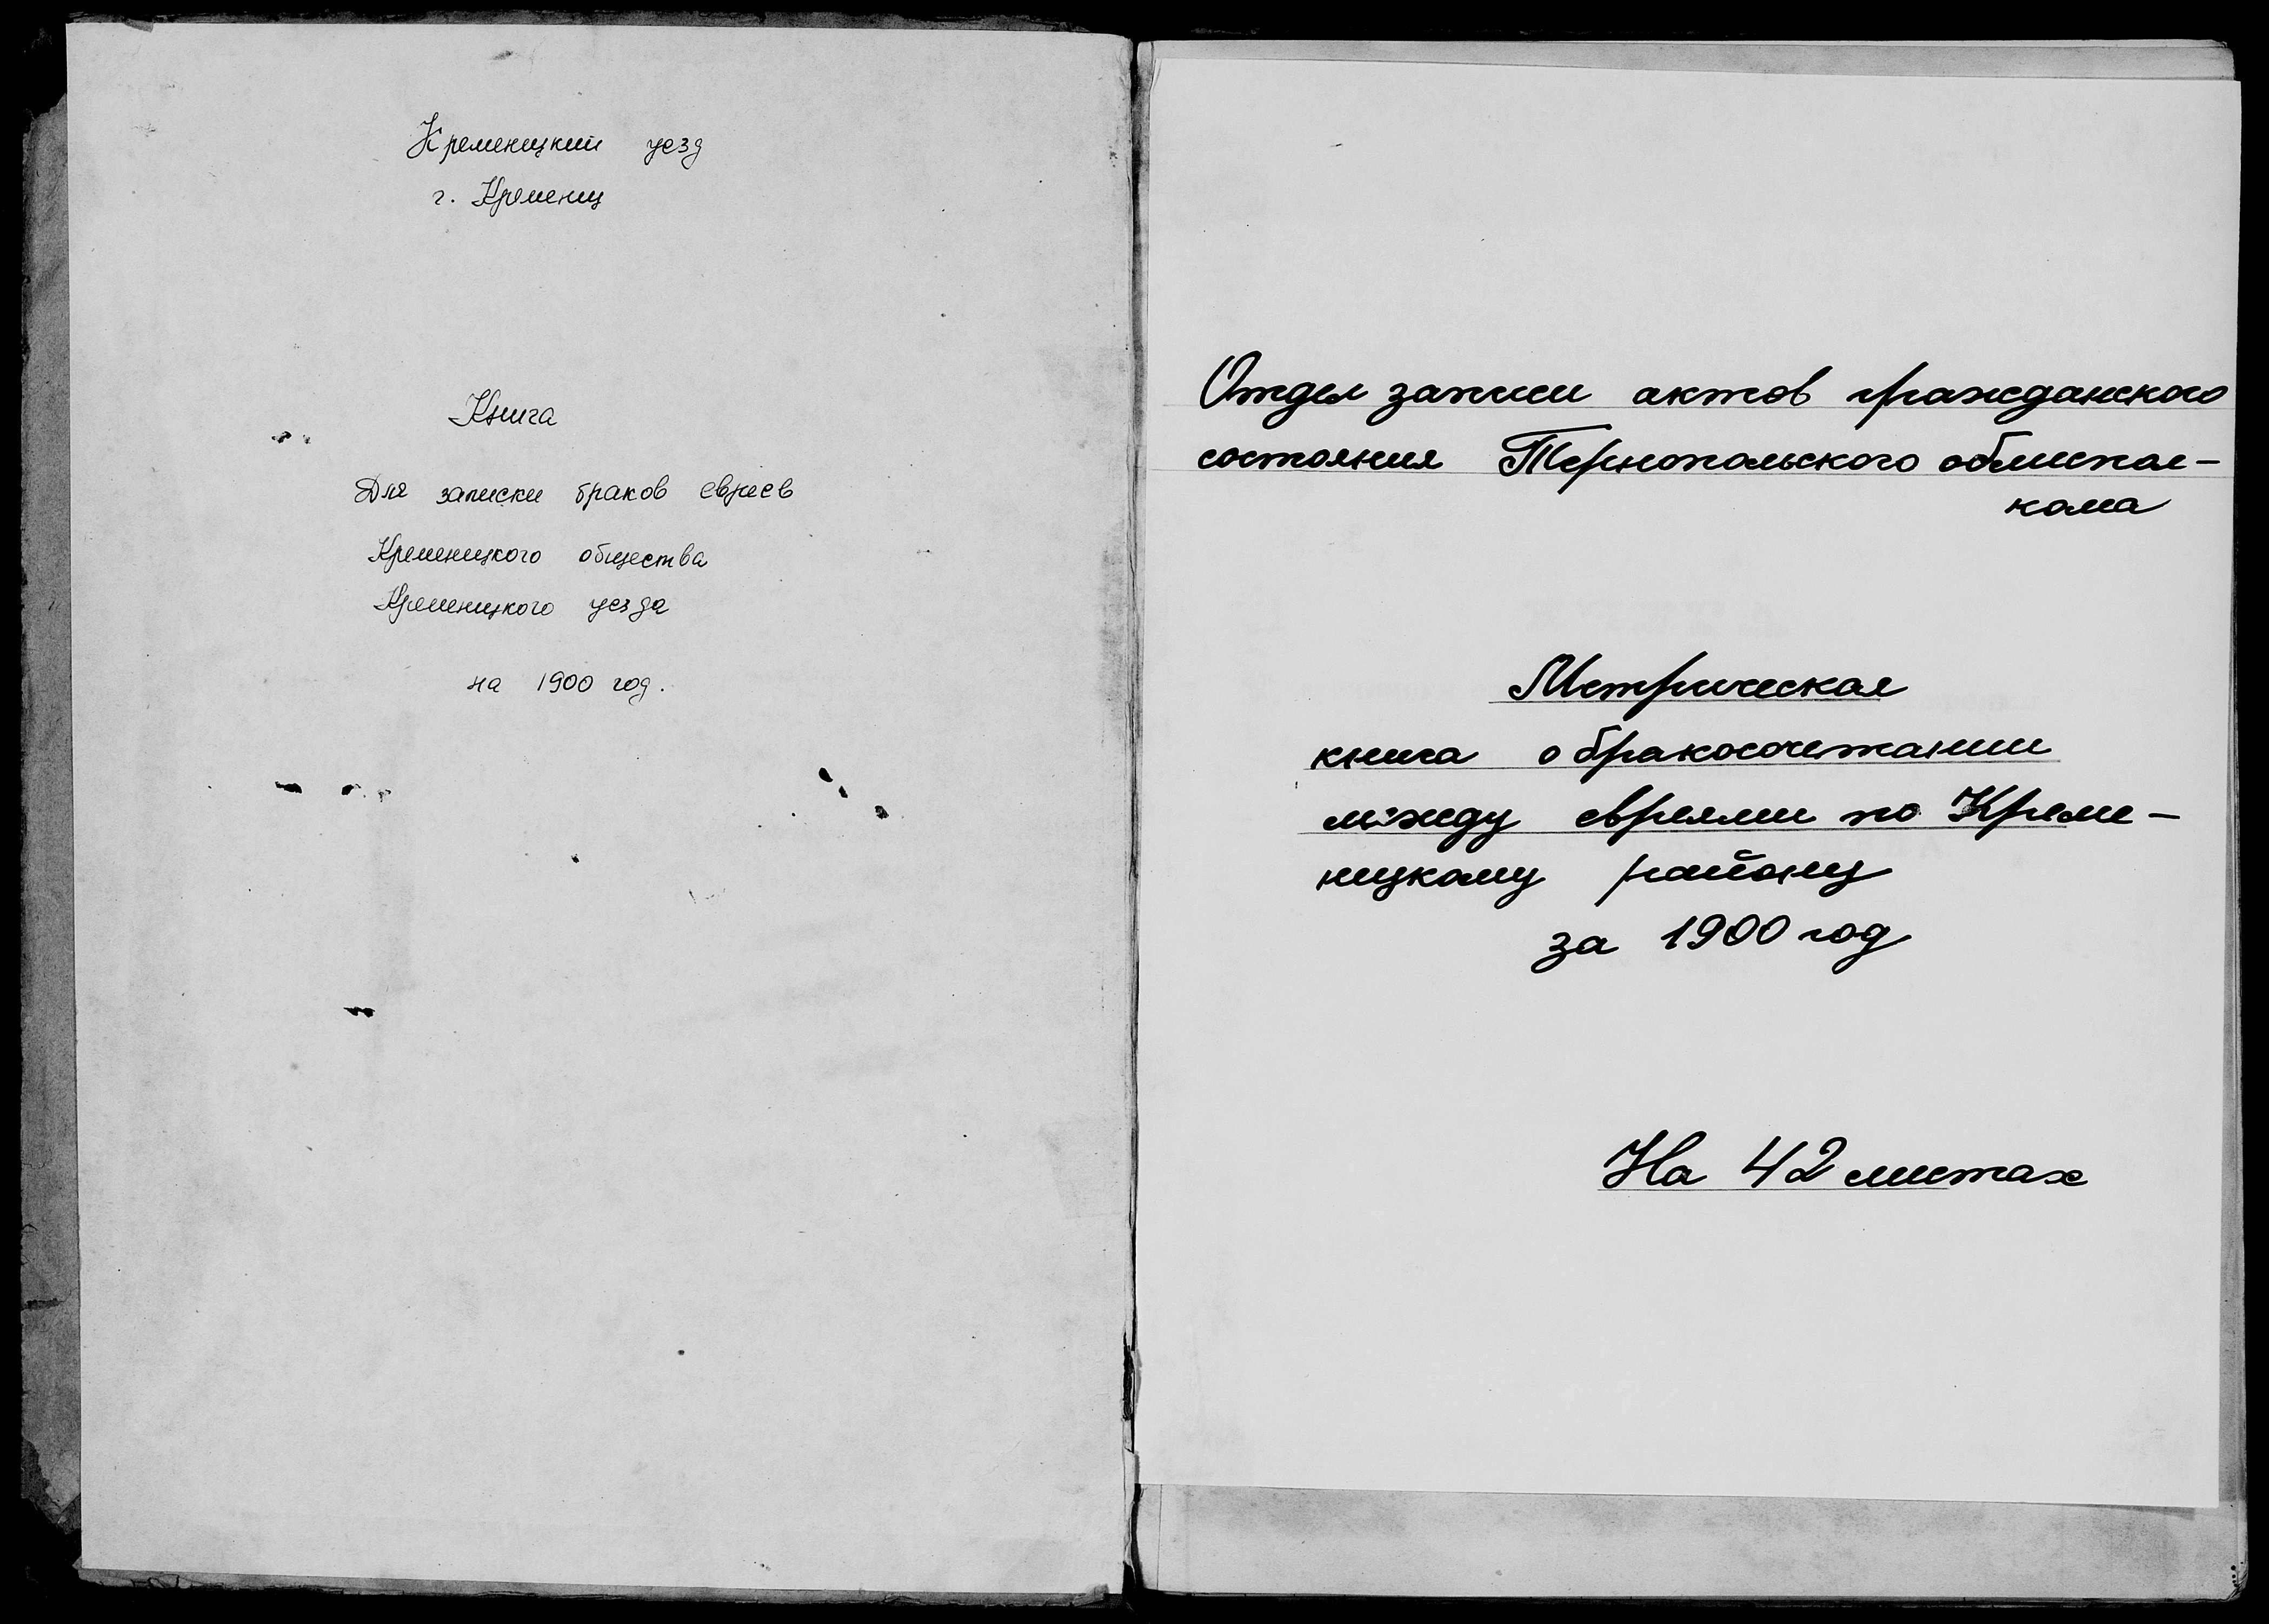 Кременецкий уезд
г. Кременец
Книга
Для записки браков евреев
Кременецкого общества
Кременецкого уезда
на 1900 год.
Отдел записи актов гражданского
состояния Тернопольского облиспол-
кома
Метрическая
книга о бракосочетании
между евреями по Креме-
нецкому району
за 1900 год
На 42 листах